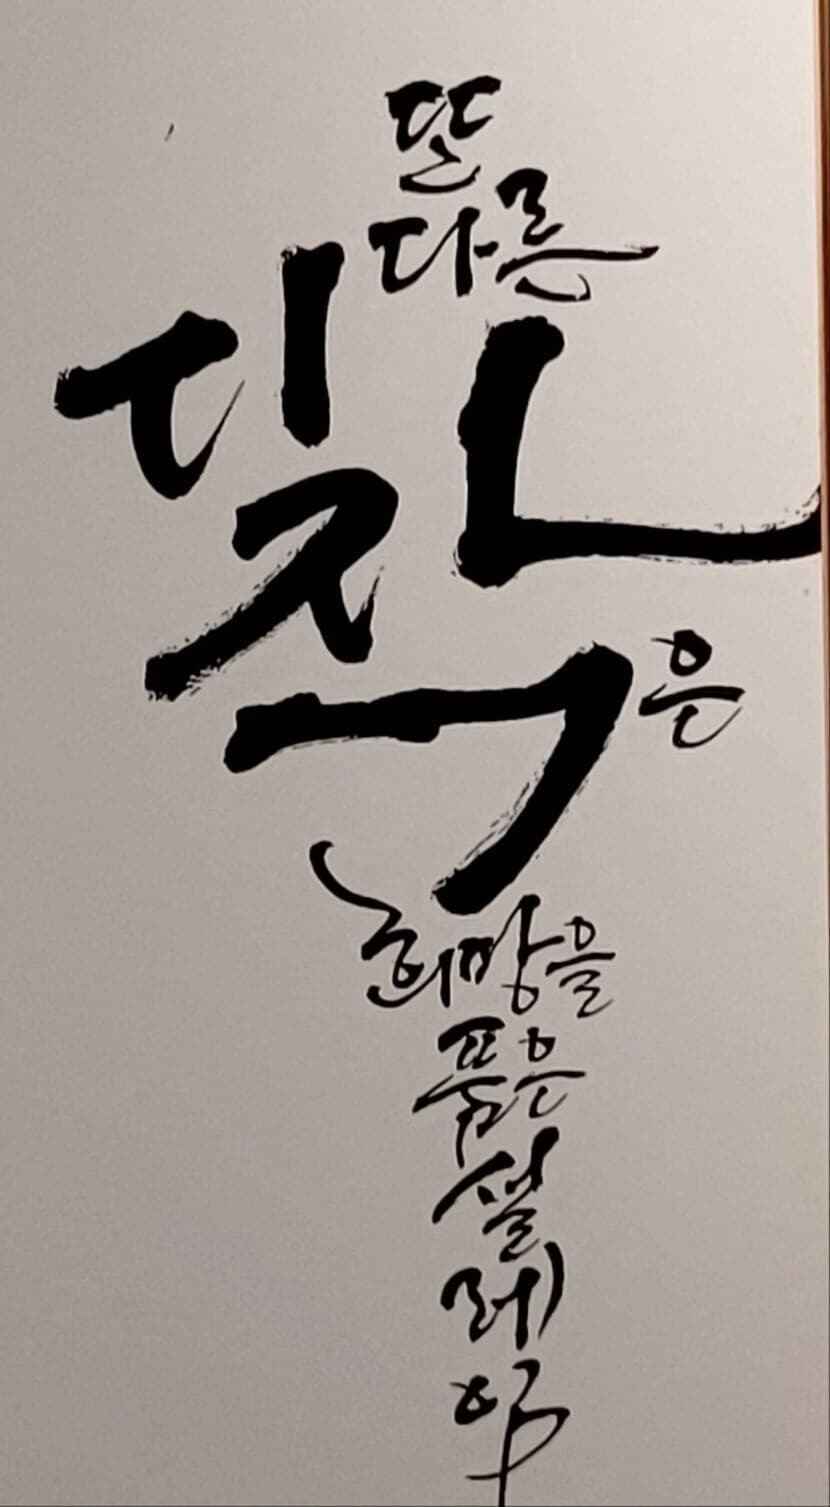 또
다른
시작은
희망을
품은
설
레
임